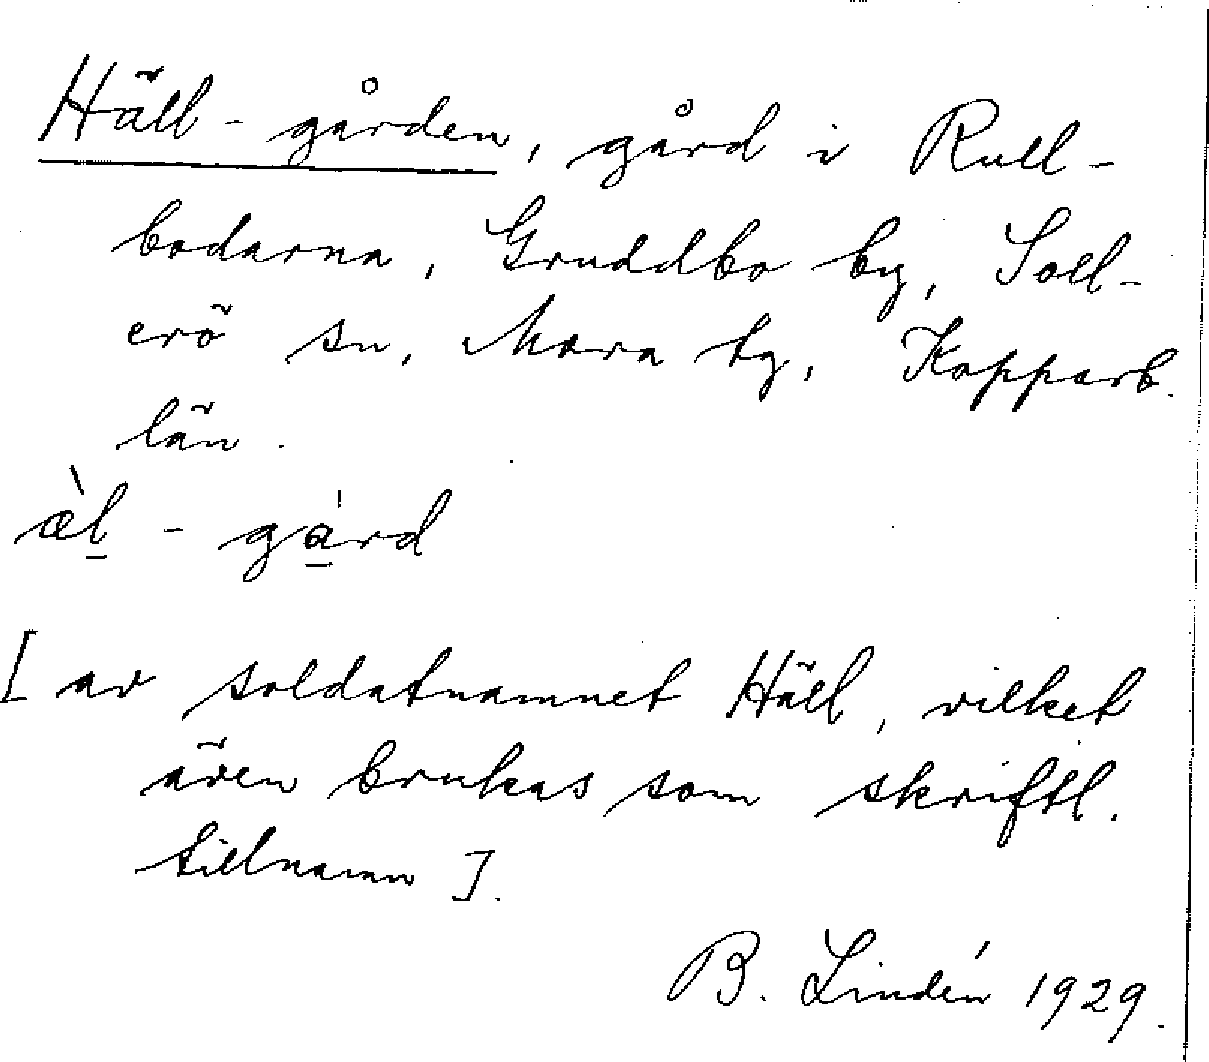 Häll-gården, gård i Rull-
bodarna, Gruddbo by, Soll-
erö sn, Mora tg, Kopparb.
län.
æ̀l̠ - gà̠rd
[av soldatnamnet Häll, vilket
även brukas som skriftl.
tillnamn].
B. Lindén 1929.